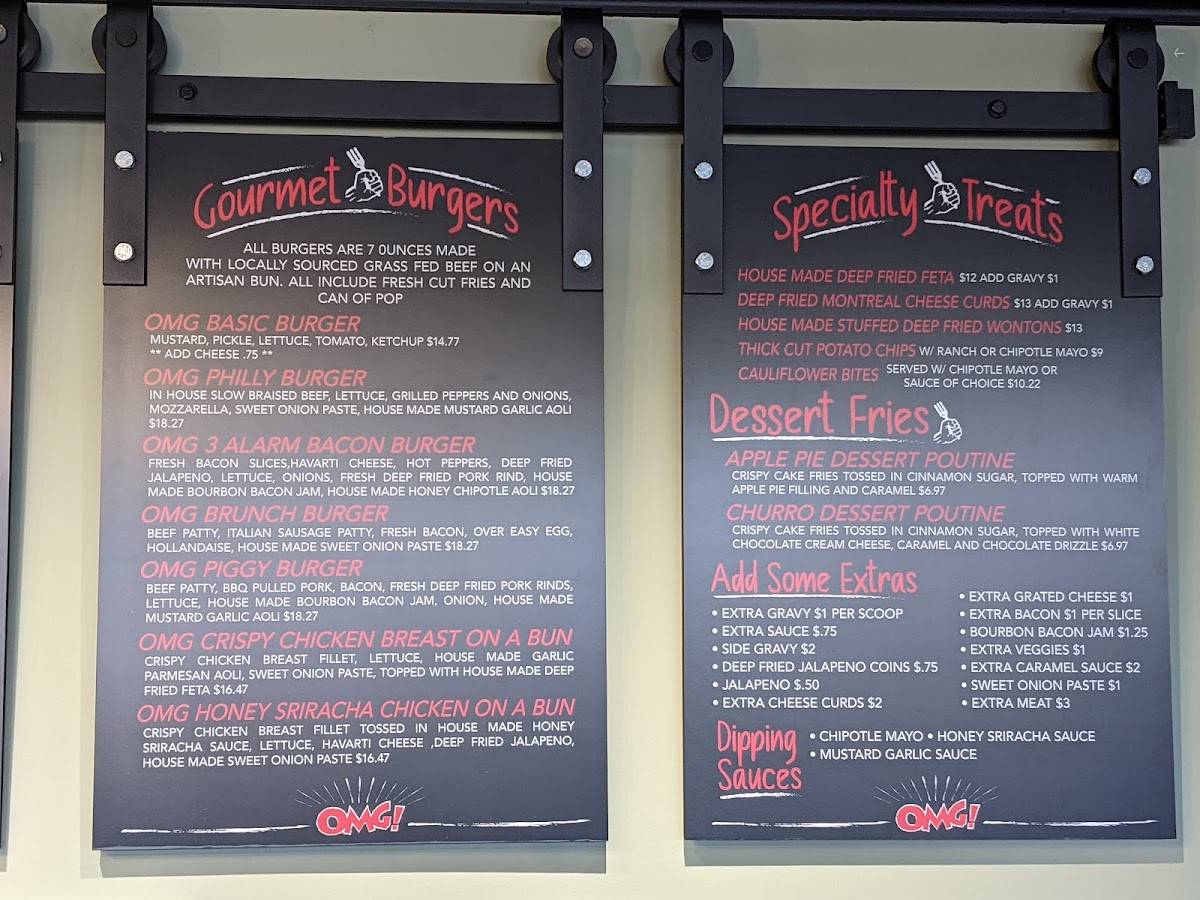 Gourmet Burgers
ALL BURGERS ARE 7 OUNCES MADE
WITH LOCALLY SOURCED GRASS FED BEEF ON AN
ARTISAN BUN. ALL INCLUDE FRESH CUT FRIES AND
CAN OF POP
OMG BASIC BURGER
MUSTARD, PICKLE, LETTUCE, TOMATO, KETCHUP $14.77
** ADD CHEESE .75 **
OMG PHILLY BURGER
IN HOUSE SLOW BRAISED BEEF, LETTUCE, GRILLED PEPPERS AND ONIONS,
MOZZARELLA, SWEET ONION PASTE, HOUSE MADE MUSTARD GARLIC AOLI
$18.27
OMG 3 ALARM BACON BURGER
FRESH BACON SLICES,HAVARTI CHEESE, HOT PEPPERS, DEEP FRIED
JALAPENO, LETTUCE, ONIONS, FRESH DEEP FRIED PORK RIND, HOUSE
MADE BOURBON BACON JAM, HOUSE MADE HONEY CHIPOTLE AOLI $18.27
OMG BRUNCH BURGER
BEEF PATTY, ITALIAN SAUSAGE PATTY, FRESH BACON, OVER EASY EGG,
HOLLANDAISE, HOUSE MADE SWEET ONION PASTE $18.27
OMG PIGGY BURGER
BEEF PATTY, BBQ PULLED PORK, BACON, FRESH DEEP FRIED PORK RINDS,
LETTUCE, HOUSE MADE BOURBON BACON JAM, ONION, HOUSE MADE
MUSTARD GARLIC AOLI $18.27
OMG CRISPY CHICKEN BREAST ON A BUN
CRISPY CHICKEN BREAST FILLET, LETTUCE, HOUSE MADE GARLIC
PARMESAN AOLI, SWEET ONION PASTE, TOPPED WITH HOUSE MADE DEEP
FRIED FETA $16.47
OMG HONEY SRIRACHA CHICKEN ON A BUN
CRISPY CHICKEN BREAST FILLET TOSSED IN HOUSE MADE HONEY
SRIRACHA SAUCE, LETTUCE, HAVARTI CHEESE ,DEEP FRIED JALAPENO,
HOUSE MADE SWEET ONION PASTE $16.47
OMG!
Specialty Treats
HOUSE MADE DEEP FRIED FETA $12 ADD GRAVY $1
DEEP FRIED MONTREAL CHEESE CURDS $13 ADD GRAVY $1
HOUSE MADE STUFFED DEEP FRIED WONTONS $13
THICK CUT POTATO CHIPS W/ RANCH OR CHIPOTLE MAYO $9
CAULIFLOWER BITES SERVED W/ CHIPOTLE MAYO OR
SAUCE OF CHOICE $10.22
Dessert Fries
APPLE PIE DESSERT POUTINE
CRISPY CAKE FRIES TOSSED IN CINNAMON SUGAR, TOPPED WITH WARM
APPLE PIE FILLING AND CARAMEL $6.97
CHURRO DESSERT POUTINE
CRISPY CAKE FRIES TOSSED IN CINNAMON SUGAR, TOPPED WITH WHITE
CHOCOLATE CREAM CHEESE, CARAMEL AND CHOCOLATE DRIZZLE $6.97
Add Some Extras
• EXTRA GRAVY $1 PER SCOOP
• EXTRA SAUCE $.75
• SIDE GRAVY $2
• DEEP FRIED JALAPENO COINS $.75
• JALAPENO $.50
• EXTRA CHEESE CURDS $2
• EXTRA GRATED CHEESE $1
• EXTRA BACON $1 PER SLICE
• BOURBON BACON JAM $1.25
• EXTRA VEGGIES $1
• EXTRA CARAMEL SAUCE $2
• SWEET ONION PASTE $1
• EXTRA MEAT $3
Dipping
Sauces
• CHIPOTLE MAYO • HONEY SRIRACHA SAUCE
• MUSTARD GARLIC SAUCE
OMG!